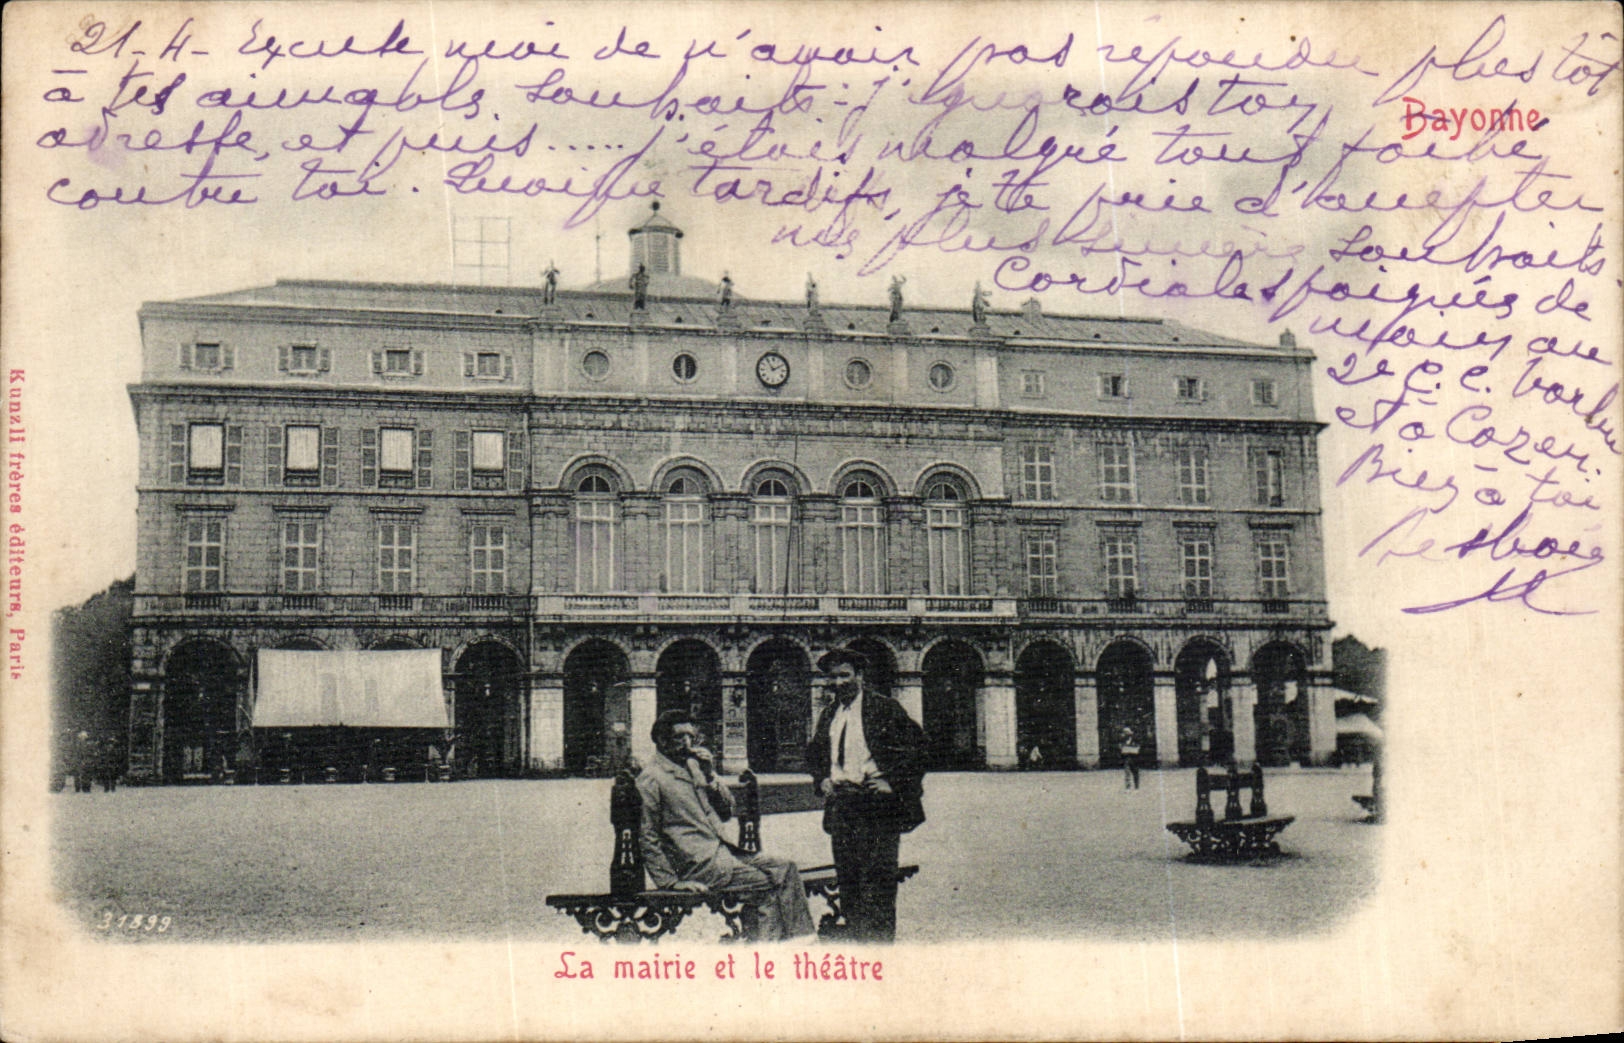 21-4- Excuse moi de n'avoir pas répondu plus tôt
à tes aimables souhaits : j'ignorais ton
Bayonne
adresse, et puis ..... j'étais malgré tout fâché
contre toi. Quoique tardifs, je te prie d'accepter
mes plus sincères souhaits
Cordiales poignées de
main au
2e C. C.
et à Cazen.
Bien à toi
Kunzli frères éditeurs, Paris
31899
La mairie et le théâtre